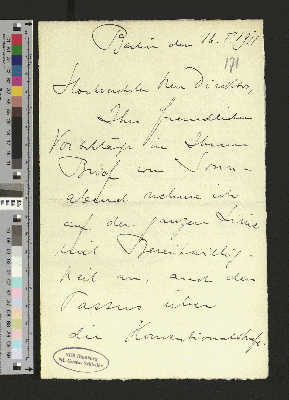 Berlin den 16. V 1911
171
Hochverehrter Herr Direktor,
Ihre freundlichen
Vorschläge in Ihrem
Brief von Sonn-
abend nehme ich
auf der ganzen Linie
mit Bereitwillig-
keit an, auch den
Passus über
die Konventionalstrafe.
SUB Hamburg
NL Gustav Schiefler